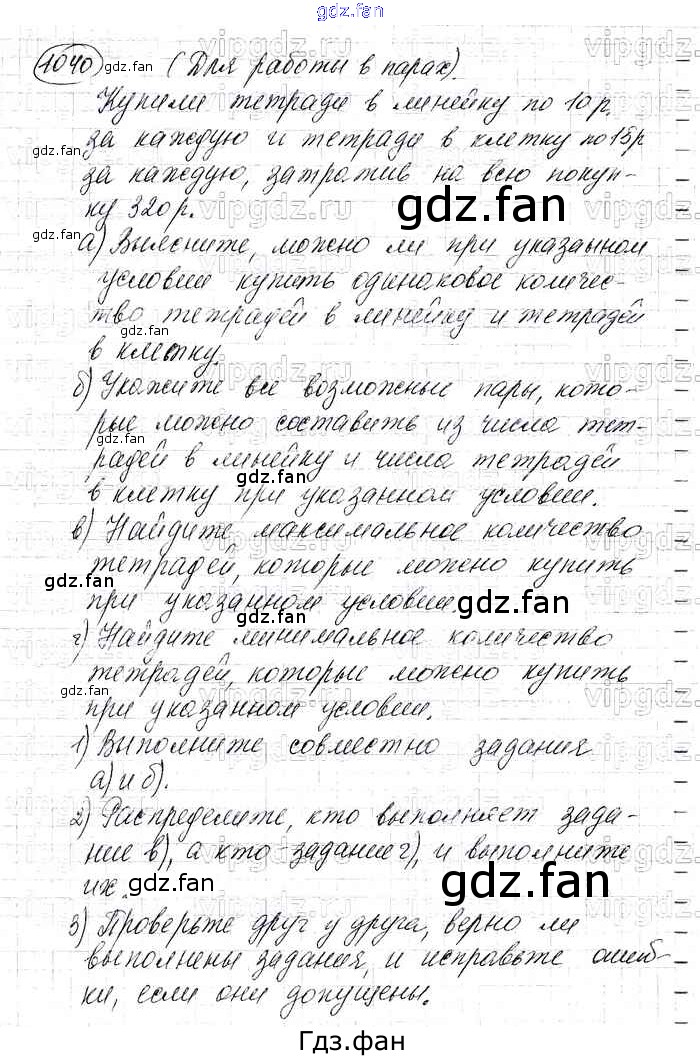 gdz.fan
1040 gdz.fan (Для работы в парах).
Купили тетради в линейку по 10 р.
gdz.fan за каждую и тетради в клетку по 15 р
за каждую, затратив на всю покуп-
ку 320 р. gdz.fan
gdz.fan а) Выясните, можно ли при указаыном
условии купить одинаковое количес-
тво тетрадей в линейку и тетрадей
gdz.fan
в клетку.
б) Укажите все возможные пары, кото-
рые можно составить из числа тет-
gdz.fan
радей в линейку и числа тетрадей
в клетку при указанном условии.
gdz.fan
в) Найдите максимальное количество
тетрадей, которые можно купить
gdz.fan
при указанном условии
gdz.fan
г) Найдите минимальное количество
тетрадей, которые можно купить
gdz.fan
при указанном условии.
1) Выполните совместно задания
а) и б).
2) Распределите, кто выполняет зада-
ние в), а кто задание г), и выполните
их. gdz.fan gdz.fan
3) Проверьте друг у друга, верно ли
выполнены задания, и исправьте ошиб-
gdz.fan
ки, если они допущены.
Гдз.фан